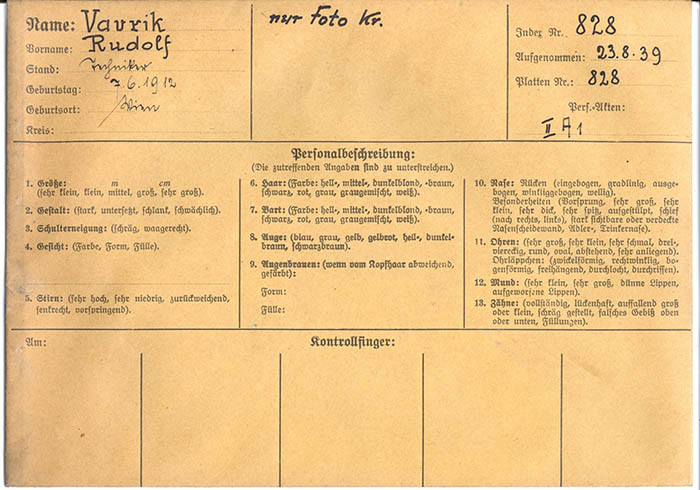 Name: Vavrik
Vorname: Rudolf
Stand: Techniker
Geburtstag: 7.6.1912
Geburtsort: Wien
Kreis:
nur Foto Kr.
Index Nr. 828
Aufgenommen: 23.8.39
Platten Nr.: 828
Pers.-Akten:
II A 1
Personalbeschreibung:
(Die zutreffenden Angaben sind zu unterstreichen.)
1. Größe: m cm
(sehr klein, klein, mittel, groß, sehr groß).
2. Gestalt: (stark, untersetzt, schlank, schwächlich).
3. Schulterneigung: (schräg, waagerecht).
4. Gesicht: (Farbe, Form, Fülle).
5. Stirn: (sehr hoch, sehr niedrig, zurückweichend,
senkrecht, vorspringend).
6. Haar: (Farbe: hell-, mittel-, dunkelblond, -braun,
schwarz, rot, grau, graugemischt, weiß).
7. Bart: (Farbe: hell-, mittel-, dunkelblond, -braun,
schwarz, rot, grau, graugemischt, weiß).
8. Auge: (blau, grau, gelb, gelbrot, hell-, dunkel-
braun, schwarzbraun).
9. Augenbrauen: (wenn vom Kopfhaar abweichend,
gefärbt):
Form:
Fülle:
10. Nase: Rücken (eingebogen, gradlinig, ausge-
bogen, winkliggebogen, wellig).
Besonderheiten (Vorsprung, sehr groß, sehr
klein, sehr dick, sehr spitz, aufgestülpt, schief
(nach rechts, links), stark sichtbare oder verdeckte
Nasenscheidewand, Adler-, Trinkernase).
11. Ohren: (sehr groß, sehr klein, sehr schmal, drei-,
viereckig, rund, oval, abstehend, sehr anliegend).
Ohrläppchen: (zwickelförmig, rechtwinklig, bo-
genförmig, freihängend, durchlocht, durchrissen).
12. Mund: (sehr klein, sehr groß, dünne Lippen,
aufgeworfene Lippen).
13. Zähne: (vollständig, lückenhaft, auffallend groß
oder klein, schräg gestellt, falsches Gebiß oben
oder unten, Füllungen).
Am:
Kontrollfinger: